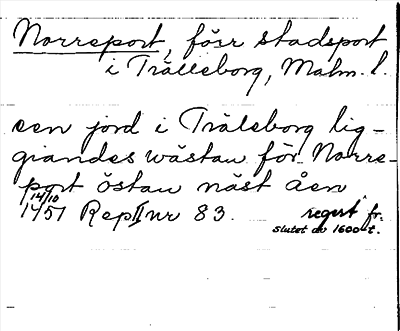 Norreport, förr stadsport
i Trälleborg, Malm. l.
een jord i Träleborg lig-
giandes wästan för Norre-
port östan näst åen
14/10
1451 Rep II nr 83. regest fr.
slutet av 1600-t.